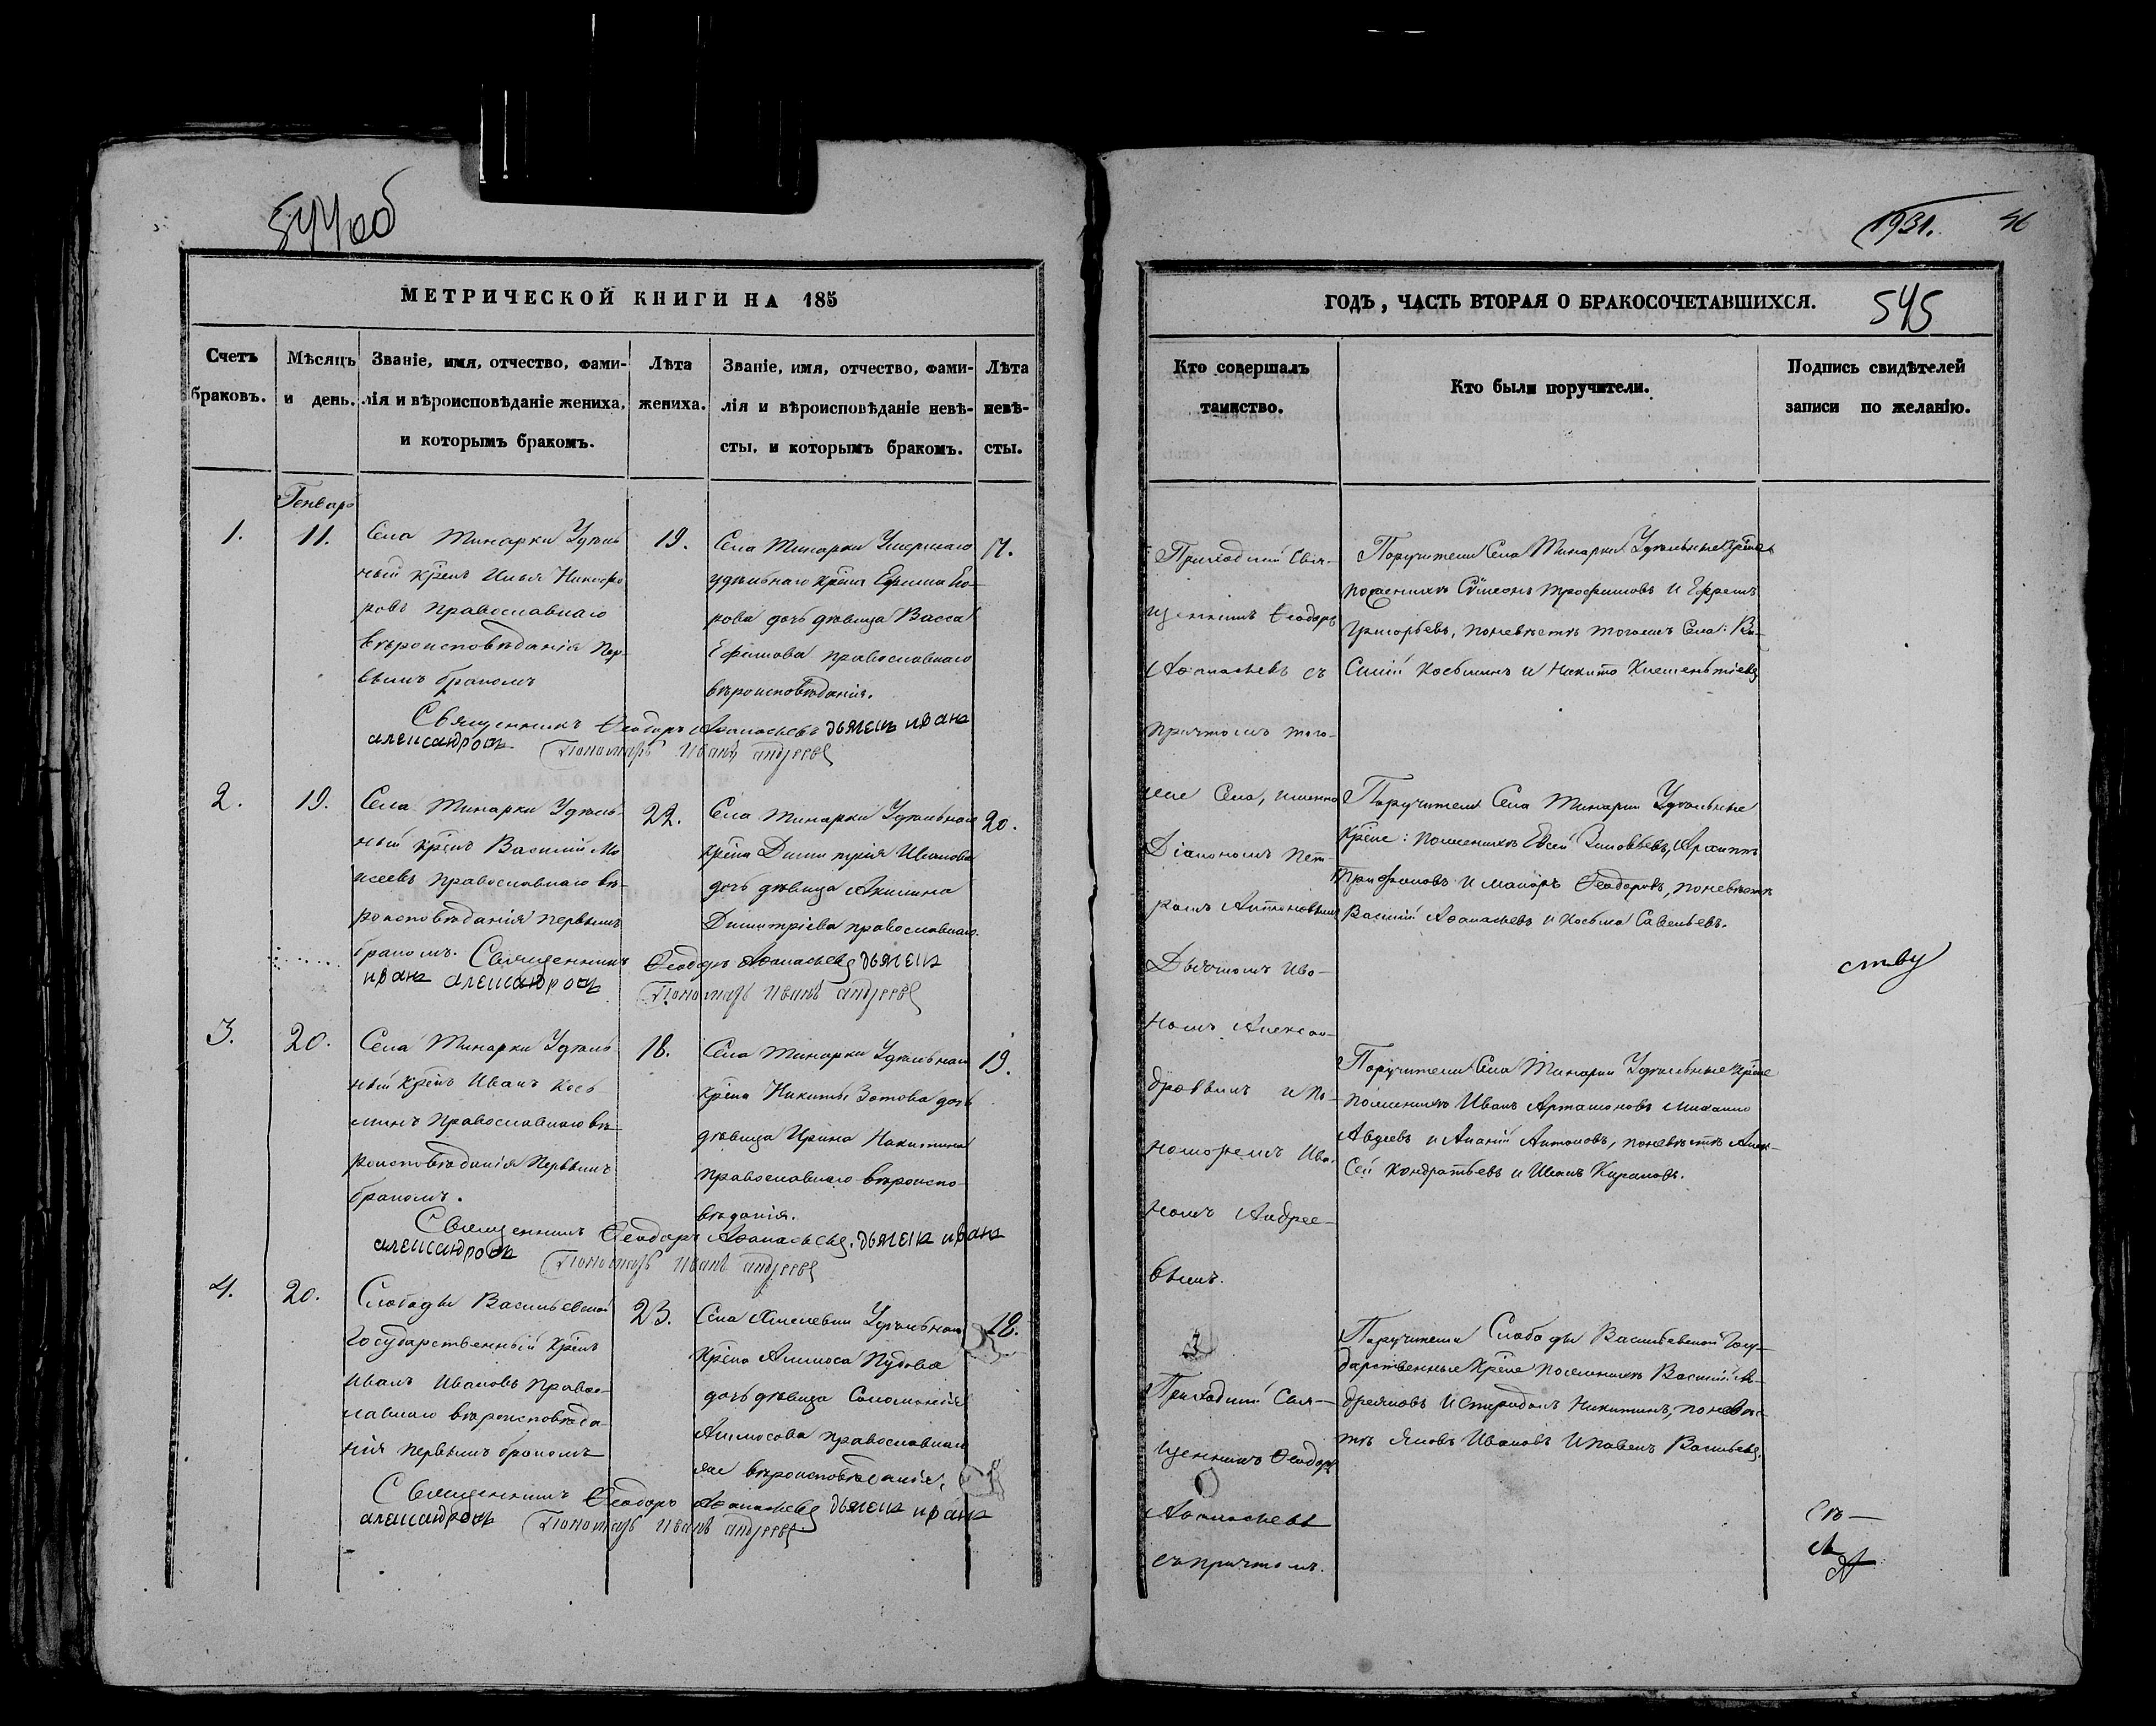 544 об
МЕТРИЧЕСКОЙ КНИГИ НА 185
Счетъ браковъ.
Мѣсяцъ и день.
Званіе, имя, отчество, фами-
лія и вѣроисповѣданіе жениха,
и которымъ бракомъ.
Лѣта жениха.
Званіе, имя, отчество, фами-
лія и вѣроисповѣданіе невѣ-
сты, и которымъ бракомъ.
Лѣта невѣ-
сты.
Генварь
1.
11.
Села Тинарки Удѣль
ный крѣнъ Илья Никифо
ровъ православнаго
вѣроисповѣданія пер-
вымъ бракомъ
19.
Села Тинарки Умершаго
удѣльнаго крѣна Ефима
дочь дѣвица Васса
Ефимова православнаго
вѣроисповѣданія.
17.
Священникъ Ѳеодоръ Аѳанасьевъ дьячекъ иванъ
александровъ Пономарь Иванъ андреевъ
2.
19.
Села Тинарки Удѣль-
ный крѣнъ Василій Мо
исеевъ православнаго вѣ-
роисповѣданія первымъ
бракомъ.
22.
Села Тинарки Удѣльнаго
крѣна Димитрія Иванова
дочь дѣвица Акилина
Димитріева православнаго.
20.
Священникъ Ѳеодоръ Аѳанасьевъ дьячекъ
иванъ александровъ Пономарь Иванъ андреевъ
3.
20.
Села Тинарки Удѣль
ный крѣнъ Иванъ Косьминъ
православнаго вѣ-
роисповѣданія первымъ
бракомъ.
18.
Села Тинарки Удѣльнаго
крѣна Никиты Зотова дочь
дѣвица Ирина Никитина
православнаго вѣроиспо-
вѣданія.
19.
Священникъ Ѳеодоръ Аѳанасьевъ. дьячекъ иванъ
александровъ Пономарь Иванъ андреевъ
4.
20.
Слободы Васильевской
Государственный крѣнъ
Иванъ Ивановъ право-
славнаго вѣроисповѣда-
нія первымъ бракомъ
23.
Села Хмелевки Удѣльнаго
крѣна Амплоса Пудова
дочь дѣвица Соломонія
православнаго
вѣроисповѣданія,
18.
Священникъ Ѳеодоръ Аѳанасьевъ дьячекъ иванъ
александровъ Пономарь Иванъ андреевъ
1931.
46
ГОДЪ, ЧАСТЬ ВТОРАЯ О БРАКОСОЧЕТАВШИХСЯ.
545
Кто совершалъ таинство.
Кто были поручители.
Подпись свидѣтелей
записи по желанію.
Приходскій Свя-
щенникъ Ѳеодоръ
Аѳанасьевъ съ
причтомъ того-
же Села, именно
Діакономъ Пет-
ромъ Антоновымъ
Дьячкомъ Ива-
номъ Алексан-
дровымъ и По-
номаремъ Ива-
номъ Андрее-
вымъ.
Поручители Села Тинарки Удѣльные крѣне
по женихѣ Сѵмеонъ Трофимовъ и Ефремъ
Григорьевъ, по невѣстѣ тогожъ Села: Ва-
силій Косьминъ и Никита Климентіевъ
Поручители Села Тинарки Удѣльные
крѣне: по женихѣ Евсей Зиновьевъ, Архиппъ
Трифоновъ и Ѳеодоровъ, по невѣстѣ
Василій Аѳанасьевъ и Косьма Савельевъ.
ству
Поручители Села Тинарки Удѣльные крѣне
по женихѣ Иванъ Артамоновъ Михаило
Авдеевъ и Ананій Антоновъ, по невѣстѣ Алек-
сей Кондратьевъ и Иванъ Кирановъ.
Приходскій Свя-
щенникъ Ѳеодоръ
Аѳанасьевъ
съ причтомъ.
Поручители Слободы Васильевской Госу-
дарственные крѣне по женихѣ Василій Ан-
дреяновъ и Спиридонъ Никитинъ, по невѣс-
тѣ Яковъ Ивановъ и Павелъ Васильевъ.